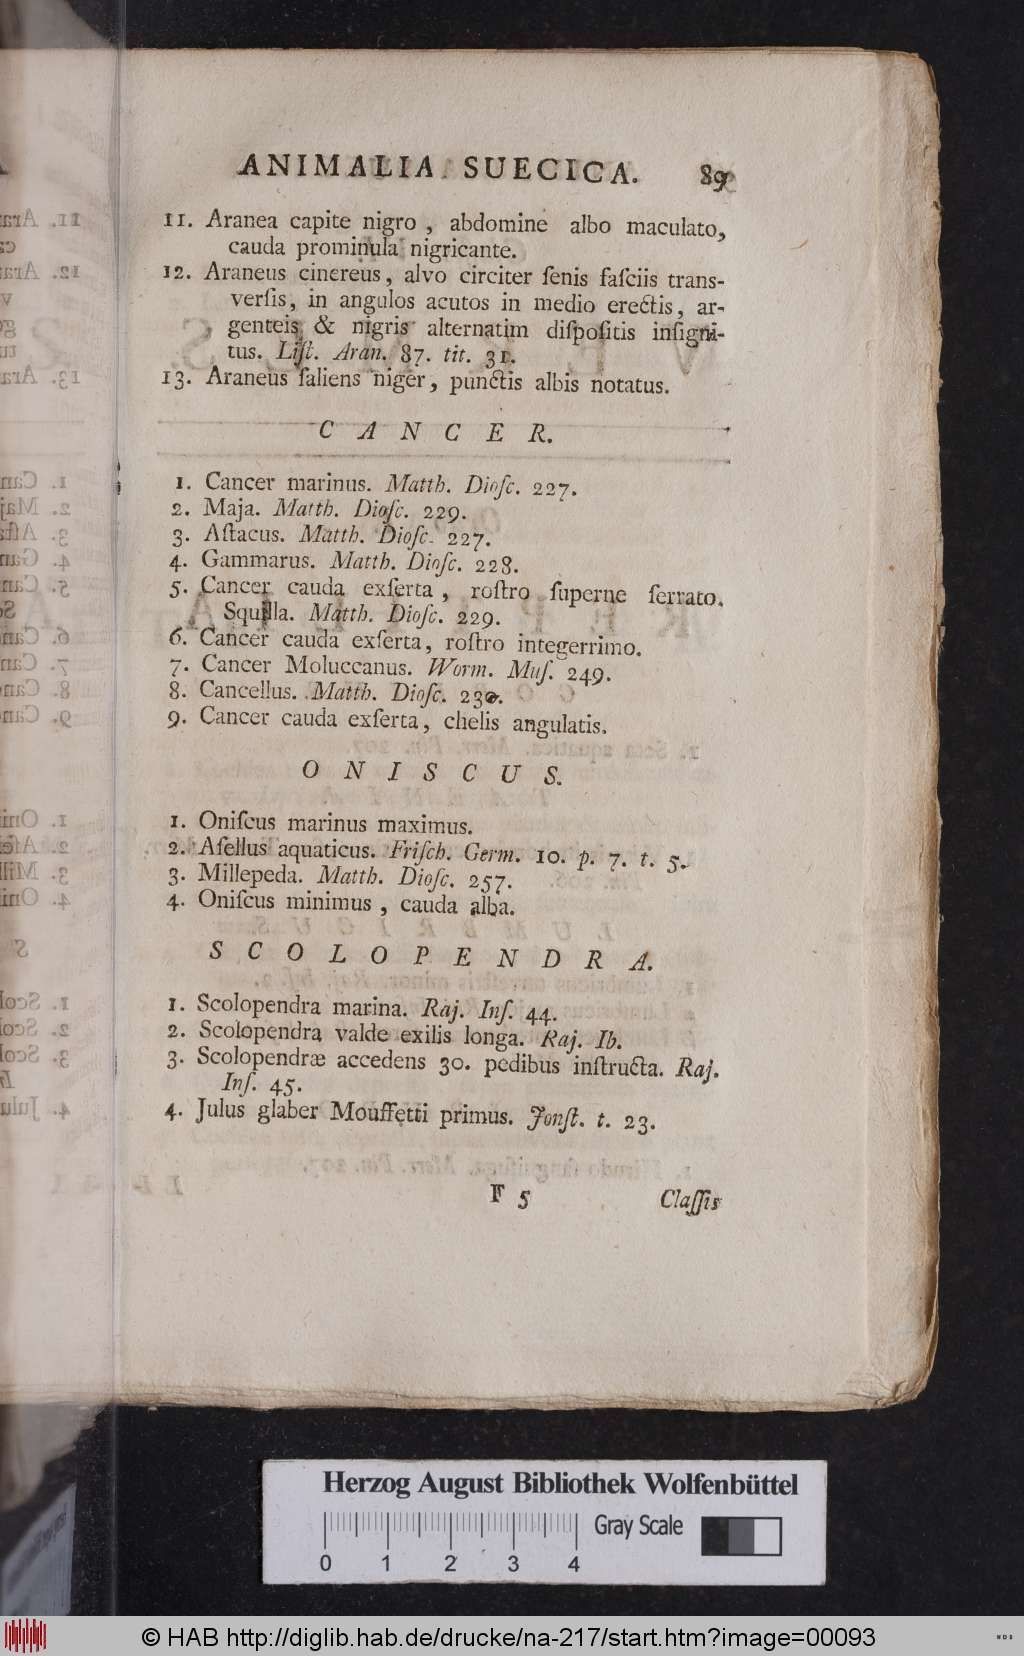 ANIMALIA SUECICA. 89
11. Aranea capite nigro , abdomine albo maculato,
cauda prominula nigricante.
12. Araneus cinereus, alvo circiter ſenis faſciis trans-
verſis, in angulos acutos in medio erectis, ar-
genteis & nigris alternatim diſpoſitis inſigni-
tus. Liſt. Aran. 87. tit. 31.
13. Araneus ſaliens niger, punctis albis notatus.
CANCER.
1. Cancer marinus. Matth. Dioſc. 227.
2. Maja. Matth. Dioſc. 229.
3. Aſtacus. Matth. Dioſc. 227.
4. Gammarus. Matth. Dioſc. 228.
5. Cancer cauda exſerta , roſtro ſuperne ſerrato.
Squilla. Matth. Dioſc. 229.
6. Cancer cauda exſerta, roſtro integerrimo.
7. Cancer Moluccanus. Worm. Muſ. 249.
8. Cancellus. Matth. Dioſc. 230.
9. Cancer cauda exſerta, chelis angulatis.
ONISCUS.
1. Oniſcus marinus maximus.
2. Aſellus aquaticus. Friſch. Germ. 10. p. 7. t. 5.
3. Millepeda. Matth. Dioſc. 257.
4. Oniſcus minimus , cauda alba.
SCOLOPENDRA.
1. Scolopendra marina. Raj. Inſ. 44.
2. Scolopendra valde exilis longa. Raj. Ib.
3. Scolopendræ accedens 30. pedibus inſtructa. Raj.
Inſ. 45.
4. Julus glaber Mouffetti primus. Jonſt. t. 23.
F 5 Claſſis
Herzog August Bibliothek Wolfenbüttel
Gray Scale
0 1 2 3 4
© HAB http://diglib.hab.de/drucke/na-217/start.htm?image=00093